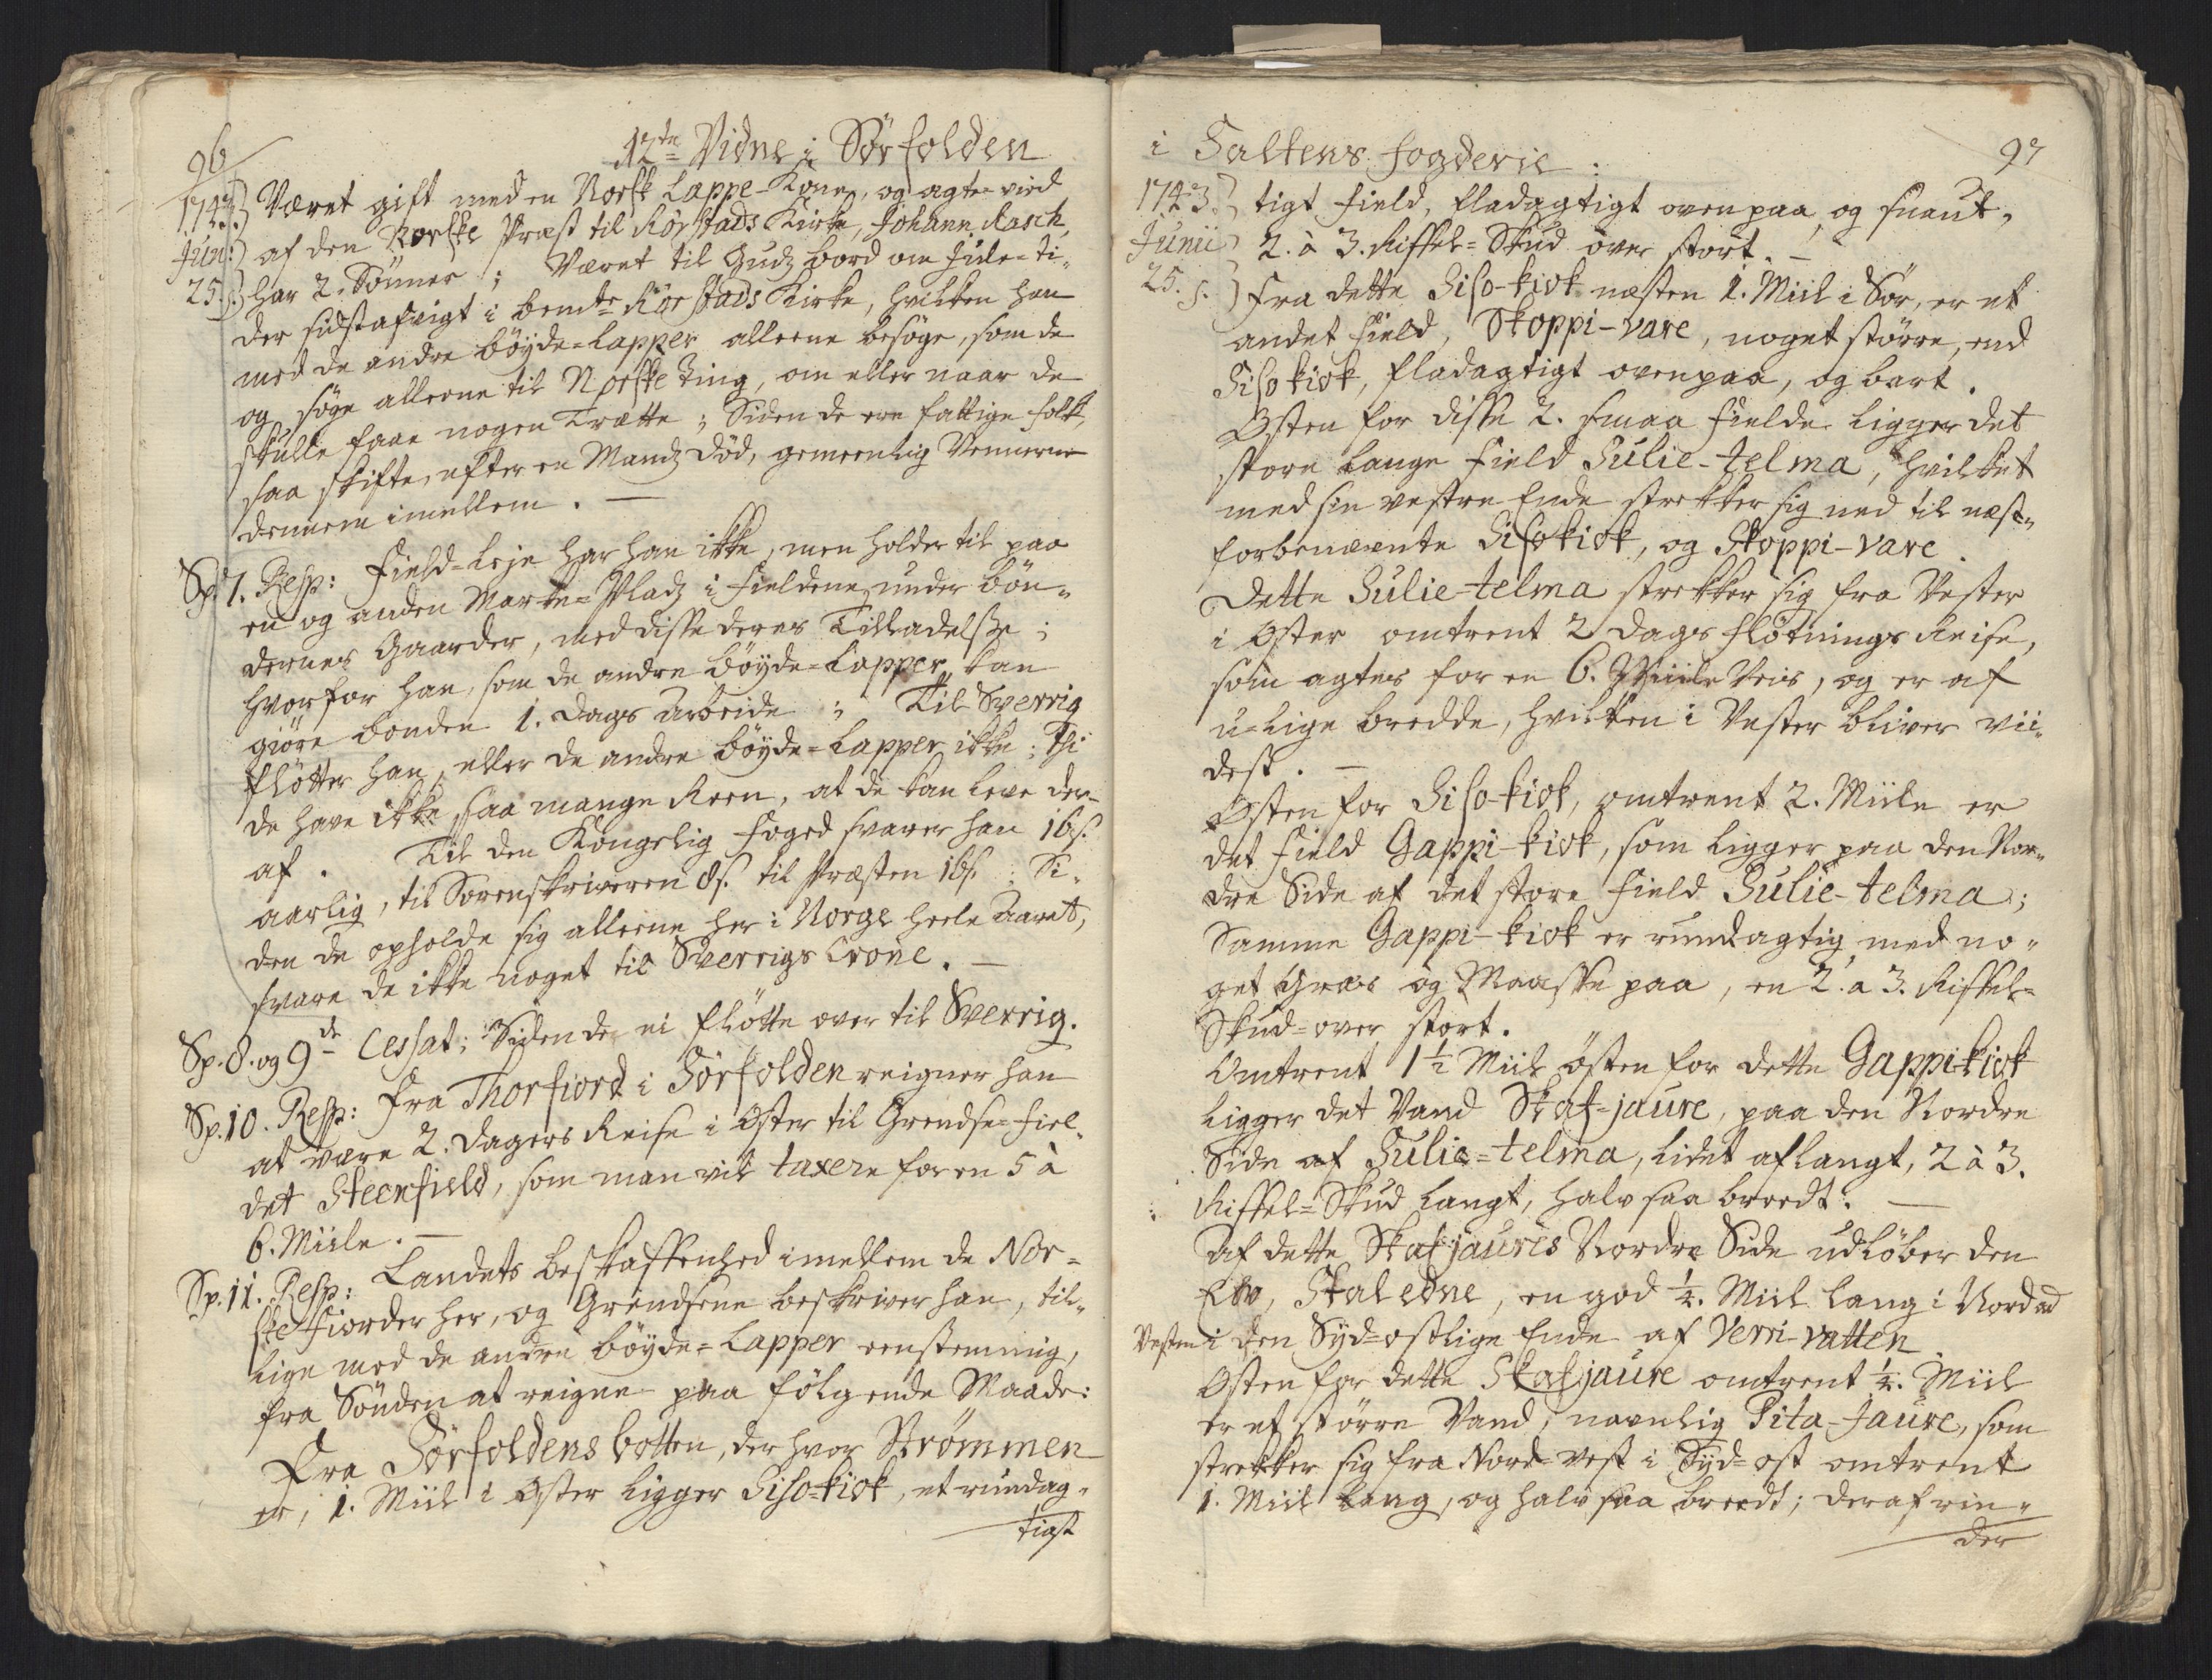 96
12te Vidne i Sörfolden
1743.) Været gift med en Norsk Lappe-Kone, og ægte-vied
Jun:) af den Norske Præst til Rörstads Kirke, Johann Rasch,
25.s.) har 2. Sönner; Været til Gudz bord om Jule-ti-
der sidstafvigt i bemte Rörstads Kirke, hvilken han
med de andre böyde-Lapper alleene besöge, som de
og söge alleene til Norske Ting, om eller naar de
skulle faae nogen Trætte; Siden de ere fattige folk,
saa skifte, efter en Mandz död, gemeenlig Vennerne
dennem imellem. —
Sp. 7. Resp: Field-Leje har han ikke, men holder til paa
en og anden Marke-Pladz i fieldene, under bön-
dernes Gaarder, med disse deres Tilladelse;
hvorfor han, som de andre böyde-Lapper, kan
giöre bonden 1. dags Arbeide; Til Sverrig
flötter han, eller de andre böyde-Lapper ikke; Thi
de have ikke saa mange Reen, at de kan leve der-
af. Til den Kongelig Foged svarer han 16s.
aarlig, til Sorenskriveren 8s. til Præsten 16s.; Si-
den de opholde sig alleene her i Norge heele Aaret,
svare de ikke noget til Sverrigs Crone. —
Sp. 8. og 9de Cessat; Siden de ei flötte over til Sverrig.
Sp. 10. Resp: Fra Thorfiord i Sörfolden reigner han
at være 2. dagers Reise i Öster til Grendse-fiel-
det Steenfield, som man vil taxere for en 5 à
6. Miile. —
Sp. 11. Resp: Landets beskaffenhed imellem de Nor-
ske fiorder her, og Grendsene beskriver han, til-
lige med de andre böyde-Lapper eenstemmig,
fra Sönden at reigne paa fölgende Maade:
Fra Sörfoldens botten, der hvor Strömmen
er, 1. Miil i Öster ligger Siso-kisk, et rundag-
tigt
i Saltens fogderie:
97
1743.) tigt field, fladagtigt oven paa, og snaut,
Junii) 2. à 3. Riffel-Skud over stort. —
25. s.) Fra dette Siso-kisk næsten 1. Miil i Sör, er et
andet field, Skoppi-vare, noget större, end
Siso kisk, fladagtigt ovenpaa, og bart.
Östen for disse 2. smaa fielde ligger det
store lange field Sulie-telma, hvilket
med sin vestre Ende strekker sig ned til næst-
forbenævnte Sisokisk, og Skoppi-vare.
Dette Sulie-telma strekker sig fra Vester
i Öster omtrent 2 dags flötnings Reise,
som agtes for en 6. Miile Veis, og er af
u-lige bredde, hvilken i Vester bliver vii-
dest. —
Östen for Siso-kisk, omtrent 2. Miile er
det field Gappi-kisk, som ligger paa den Nor-
dre Side af det store field Sulie-telma;
Samme Gappi-kisk er rundagtig, med no-
get Græs og Maasse paa, en 2. a 3. Riffel-
Skud-over stort.
Omtrent 1½ Miil östen for dette Gappi-kisk
ligger det Vand Skaf-jaure, paa den Nordre
Side af Sulie-telma, lidet aflangt, 2 à 3.
Riffel-Skud langt, halv saa breedt. —
Af dette Skafjauris Nordre Side udlöber den
Elv, Skaledne, en god ½. Miil lang i Nord ad
Vesten i den Syd-ostlige Ende af Verri-vatten.
Östen for dette Skafjaure omtrent ½. Miil
er et större Vand, navnlig Pita-Jaure, som
strekker sig fra Nord-vest i Syd-ost omtrent
1. Miil lang, og halv saa breedt; deraf rin-
der